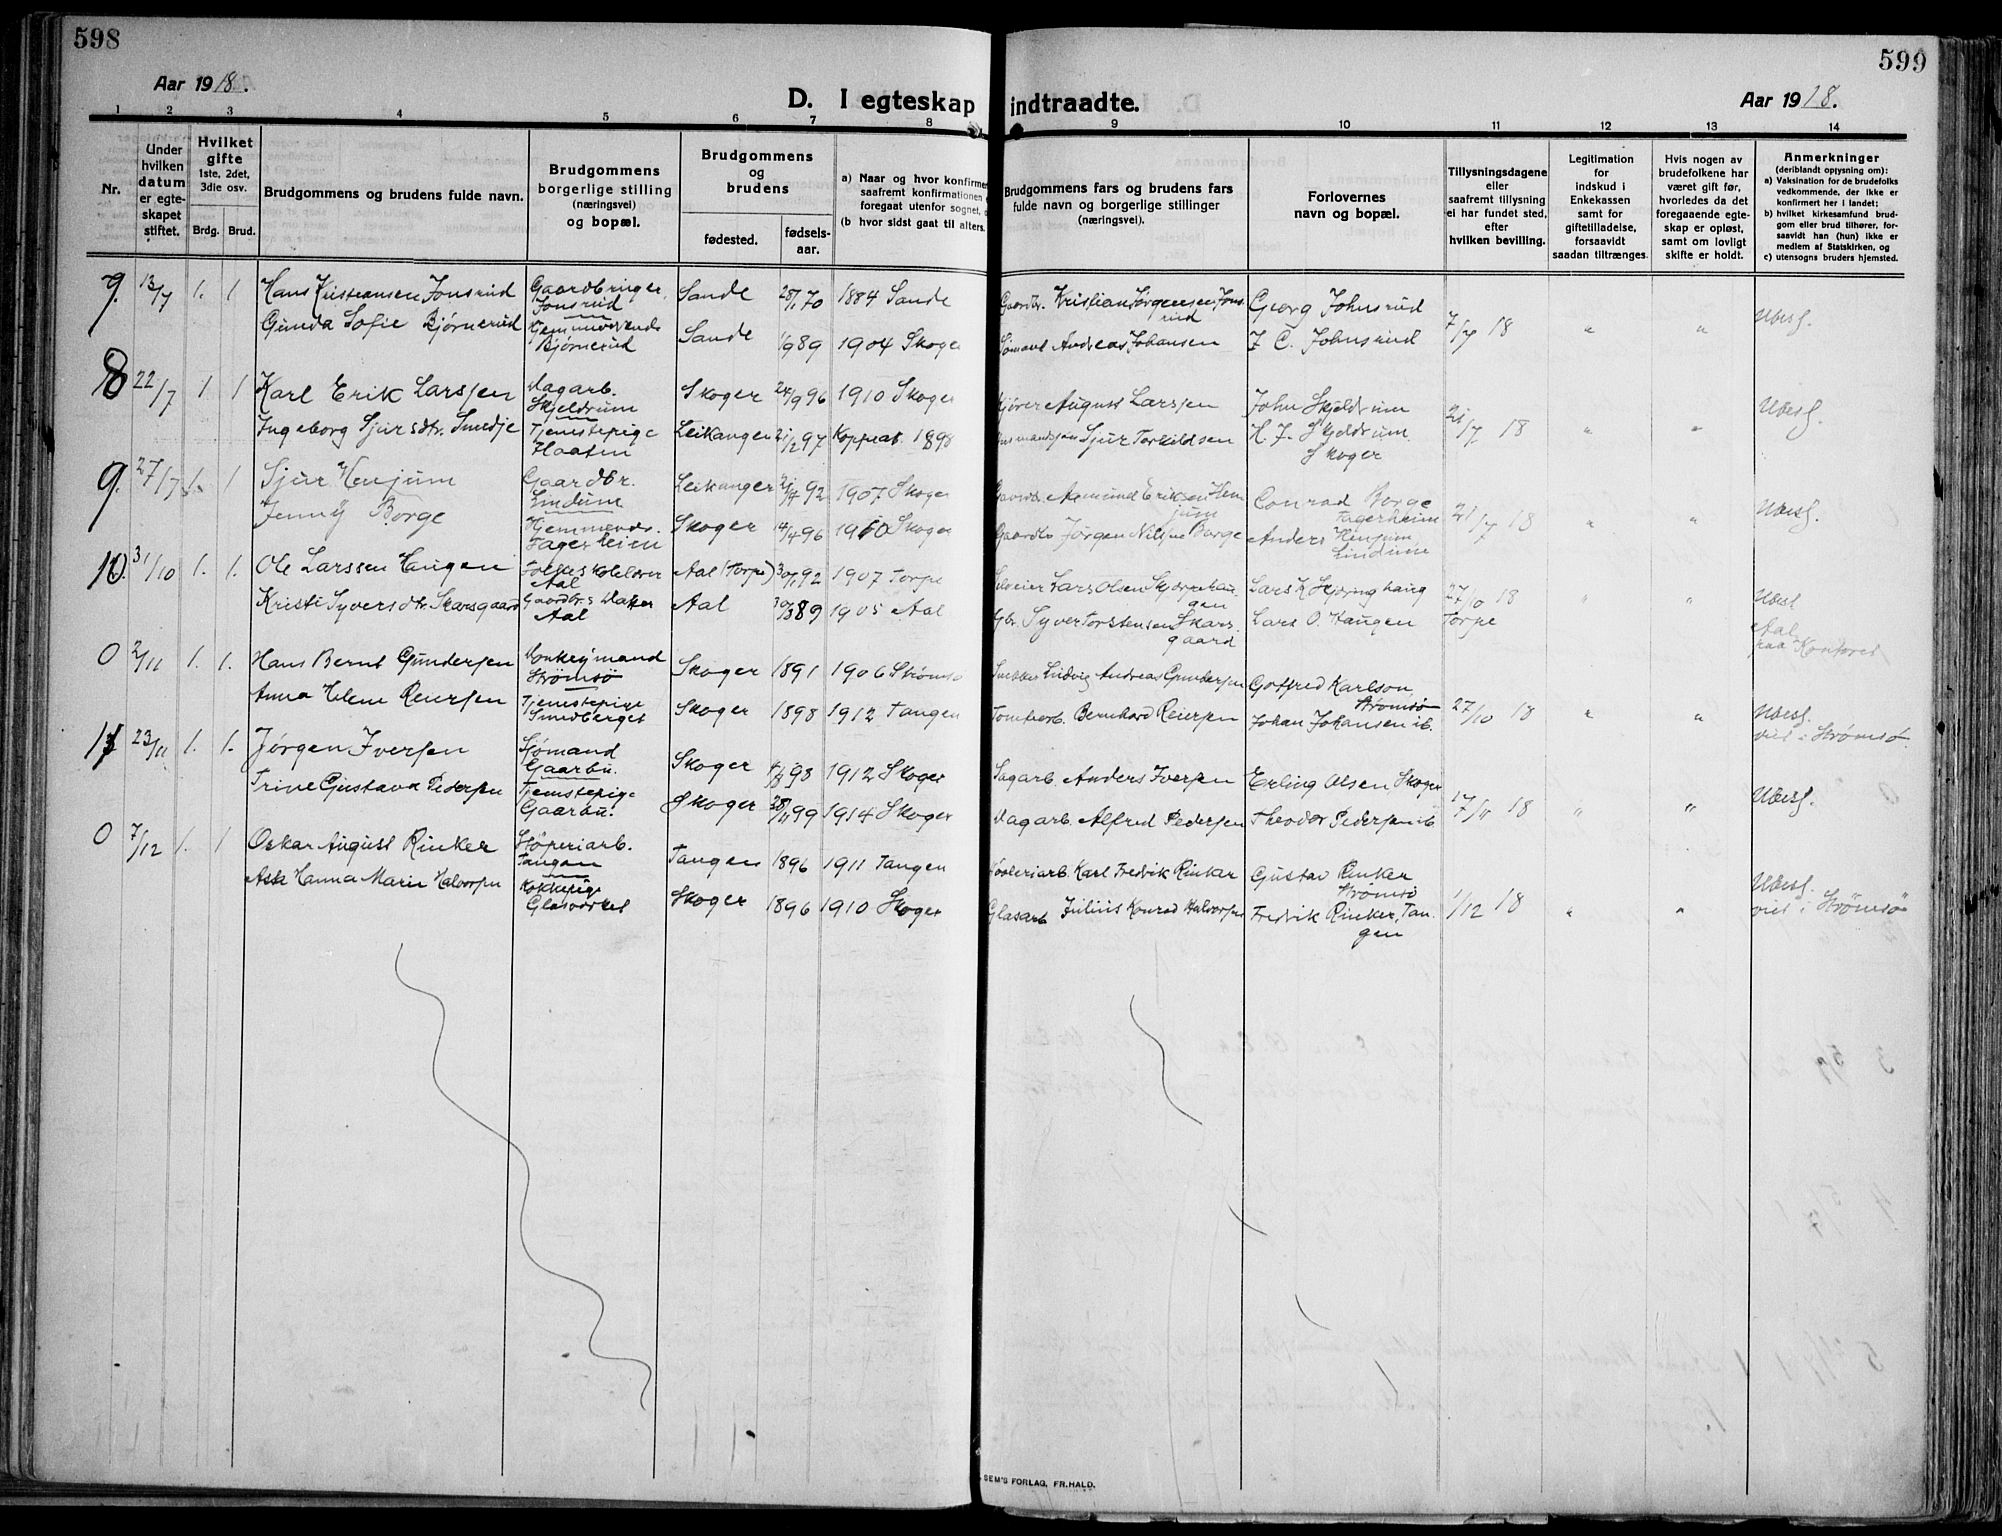 598
599
Aar 1918.
D. I egteskap indtraadte.
Aar 1918.
1 2 3 4 5 6 7 8 9 10 11 12 13 14
Nr.
Under hvilken datum er egteskapet stiftet.
Hvilket gifte 1ste, 2det, 3die osv.
Brdg. Brud.
Brudgommens og brudens fulde navn.
Brudgommens borgerlige stilling (næringsvei) og bopæl.
Brudgommens og brudens
fødested. fødselsaar.
a) Naar og hvor konfirmer
saafremt konfirmationen
foregaat utenfor sognet,
(b hvor sidst gaat til alters.
Brudgommens fars og brudens fars
fulde navn og borgerlige stillinger
(næringsvei).
Forlovernes
navn og bopæl.
Tillysningsdagene
eller
saafremt tillysning
ei har fundet sted,
efter
hvilken bevilling.
Legitimation
for
indskud i
Enkekassen
samt for
giftetilladelse,
forsaavidt
saadan tiltrænges.
Hvis nogen av
brudefolkene har
været gift før,
hvorledes da det
foregaaende egte-
skap er opløst,
samt om lovligt
skifte er holdt.
Anmerkninger
(deriblandt opjysning om):
a) Vaksination for de brudefolks
vedkommende, der ikke er
konfirmert her i landet;
b) hvilket kirkesamfund brud-
gom eller brud tilhører, for-
saavidt han (hun) ikke er
medlem af Statskirken, og
c) utensogns bruders hjemsted.
7. 13/7 1. 1 Hans Kristiansen Jonsrud Gaardbruger Jonsrud Sande 28/1 70 1884 Sande Gaardbr. Kristian Jørgensen Jonsrud Georg Johnsrud 7/7 18 " " Ubesl.
Gunda Sofie Bjørnerud Bjørnerud Sande 1/9 89 1904 Skoger Sømand Andreas Johansen J. C. Johnsrud
8 22/7 1. 1 Karl Erik Larssen Dagarb. Skjeldrum Skoger 24/9 96 1910 Skoger Kjører August Larssen John Skjeldrum 21/7 18 " " Ubesl.
Ingeborg Sjursdtr. Smedje Tjenstepige Leikanger 21/2 97 Koppeat. 1898 Sjur Torkildsen H. J. Skjeldrum Skoger
9. 27/7 1. 1 Sjur Henjum Gaardbr. Lindum Leikanger 21/4 92 1907 Skoger Gaardbr. Asmund Eriksen Henjum Conrad Borge Fagerheim 21/7 18 " " Ubesl.
Jenny Borge Hjemmevær. Fagerheim Skoger 14/4 96 1910 Skoger Gaardbr Jørgen Nilssen Borge Anders Henjum, Lindum
10. 31/10 1. 1. Ole Larssen Haugen Aal Aal (Torpe) 30/1 92 1907 Torpe Selveier Lars Olsen Skjørrehaugen Lars K Skjerringhaug 27/10 18 Torpe " " Ubesl Aal paa Kontoret
Kristi Syversdtr. Skarsgaard Gaardbr.s Datter Aal Aal 30/3 89 1905 Aal Gbr. Syver Torstensen Skarsgaard Lars O. Haugen
0 2/11 1. 1. Hans Bernt Gundersen Donkeymand Strømsø Skoger 1891 1906 Strømsø Snekker Ludvig Andreas Gundersen Gotfred Karlson, Strømsø 27/10 18 " " Ubesl. viet i Strømsø
Anna Helene Reiersen Tjenstepige Sundberget Skoger 1898 1912 Tangen Tomtearb. Bernhard Reiersen Johan Johansen ib.
11 23/11 1. 1. Jørgen Iversen Sjømand Gaarbu. Skoger 98 1912 Skoger Sagarb. Anders Iversen Erling Olsen Skoger 17/11 18 " " Ubesl.
Trine Gustava Pedersen Tjenstepige Gaarbu. Skoger 28/11 99 1914 Skoger Dagarb. Alfred Pedersen Theodor Pedersen ib.
0 7/12 1. 1 Oskar August Rinker Støperiarb. Tangen Tangen 1896 1911 Tangen Karl Fredrik Rinker Gustav Rinker Strømsø 1/12 18 " " Ubesl. viet i Strømsø
Hanna Marie Halvorsen Kokkepige Glasverket Skoger 1896 1910 Skoger Glasarb Julius Konrad Halvorsen Fredrik Rinker, Tangen
SEM'S FORLAG, FR.HALD.